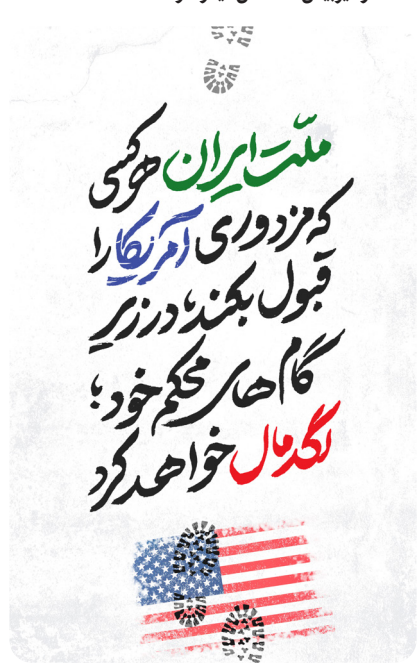 ملّت ایران هرکسی
که مزدوری آمریکا را
قبول بکند؛ در زیرِ
گام‌های محکم خود؛
لگدمال خواهد کرد